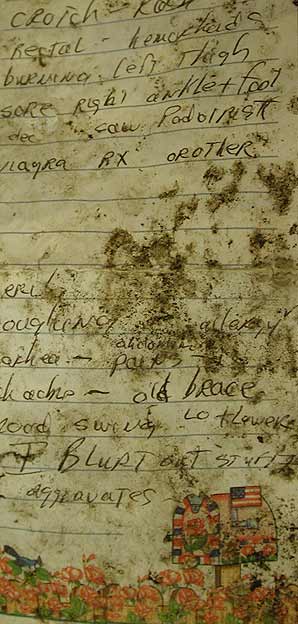 CROTCH - RASH
Rectal - hemorhoids
burning left Thigh
sore right ankle + foot
dec saw Podotrist
viagra RX or other
eril
oughing allergy
abdominal
arhea - pains
kache - old brace
mood swing Lo + lower
I BLURT out stuff
aggravates